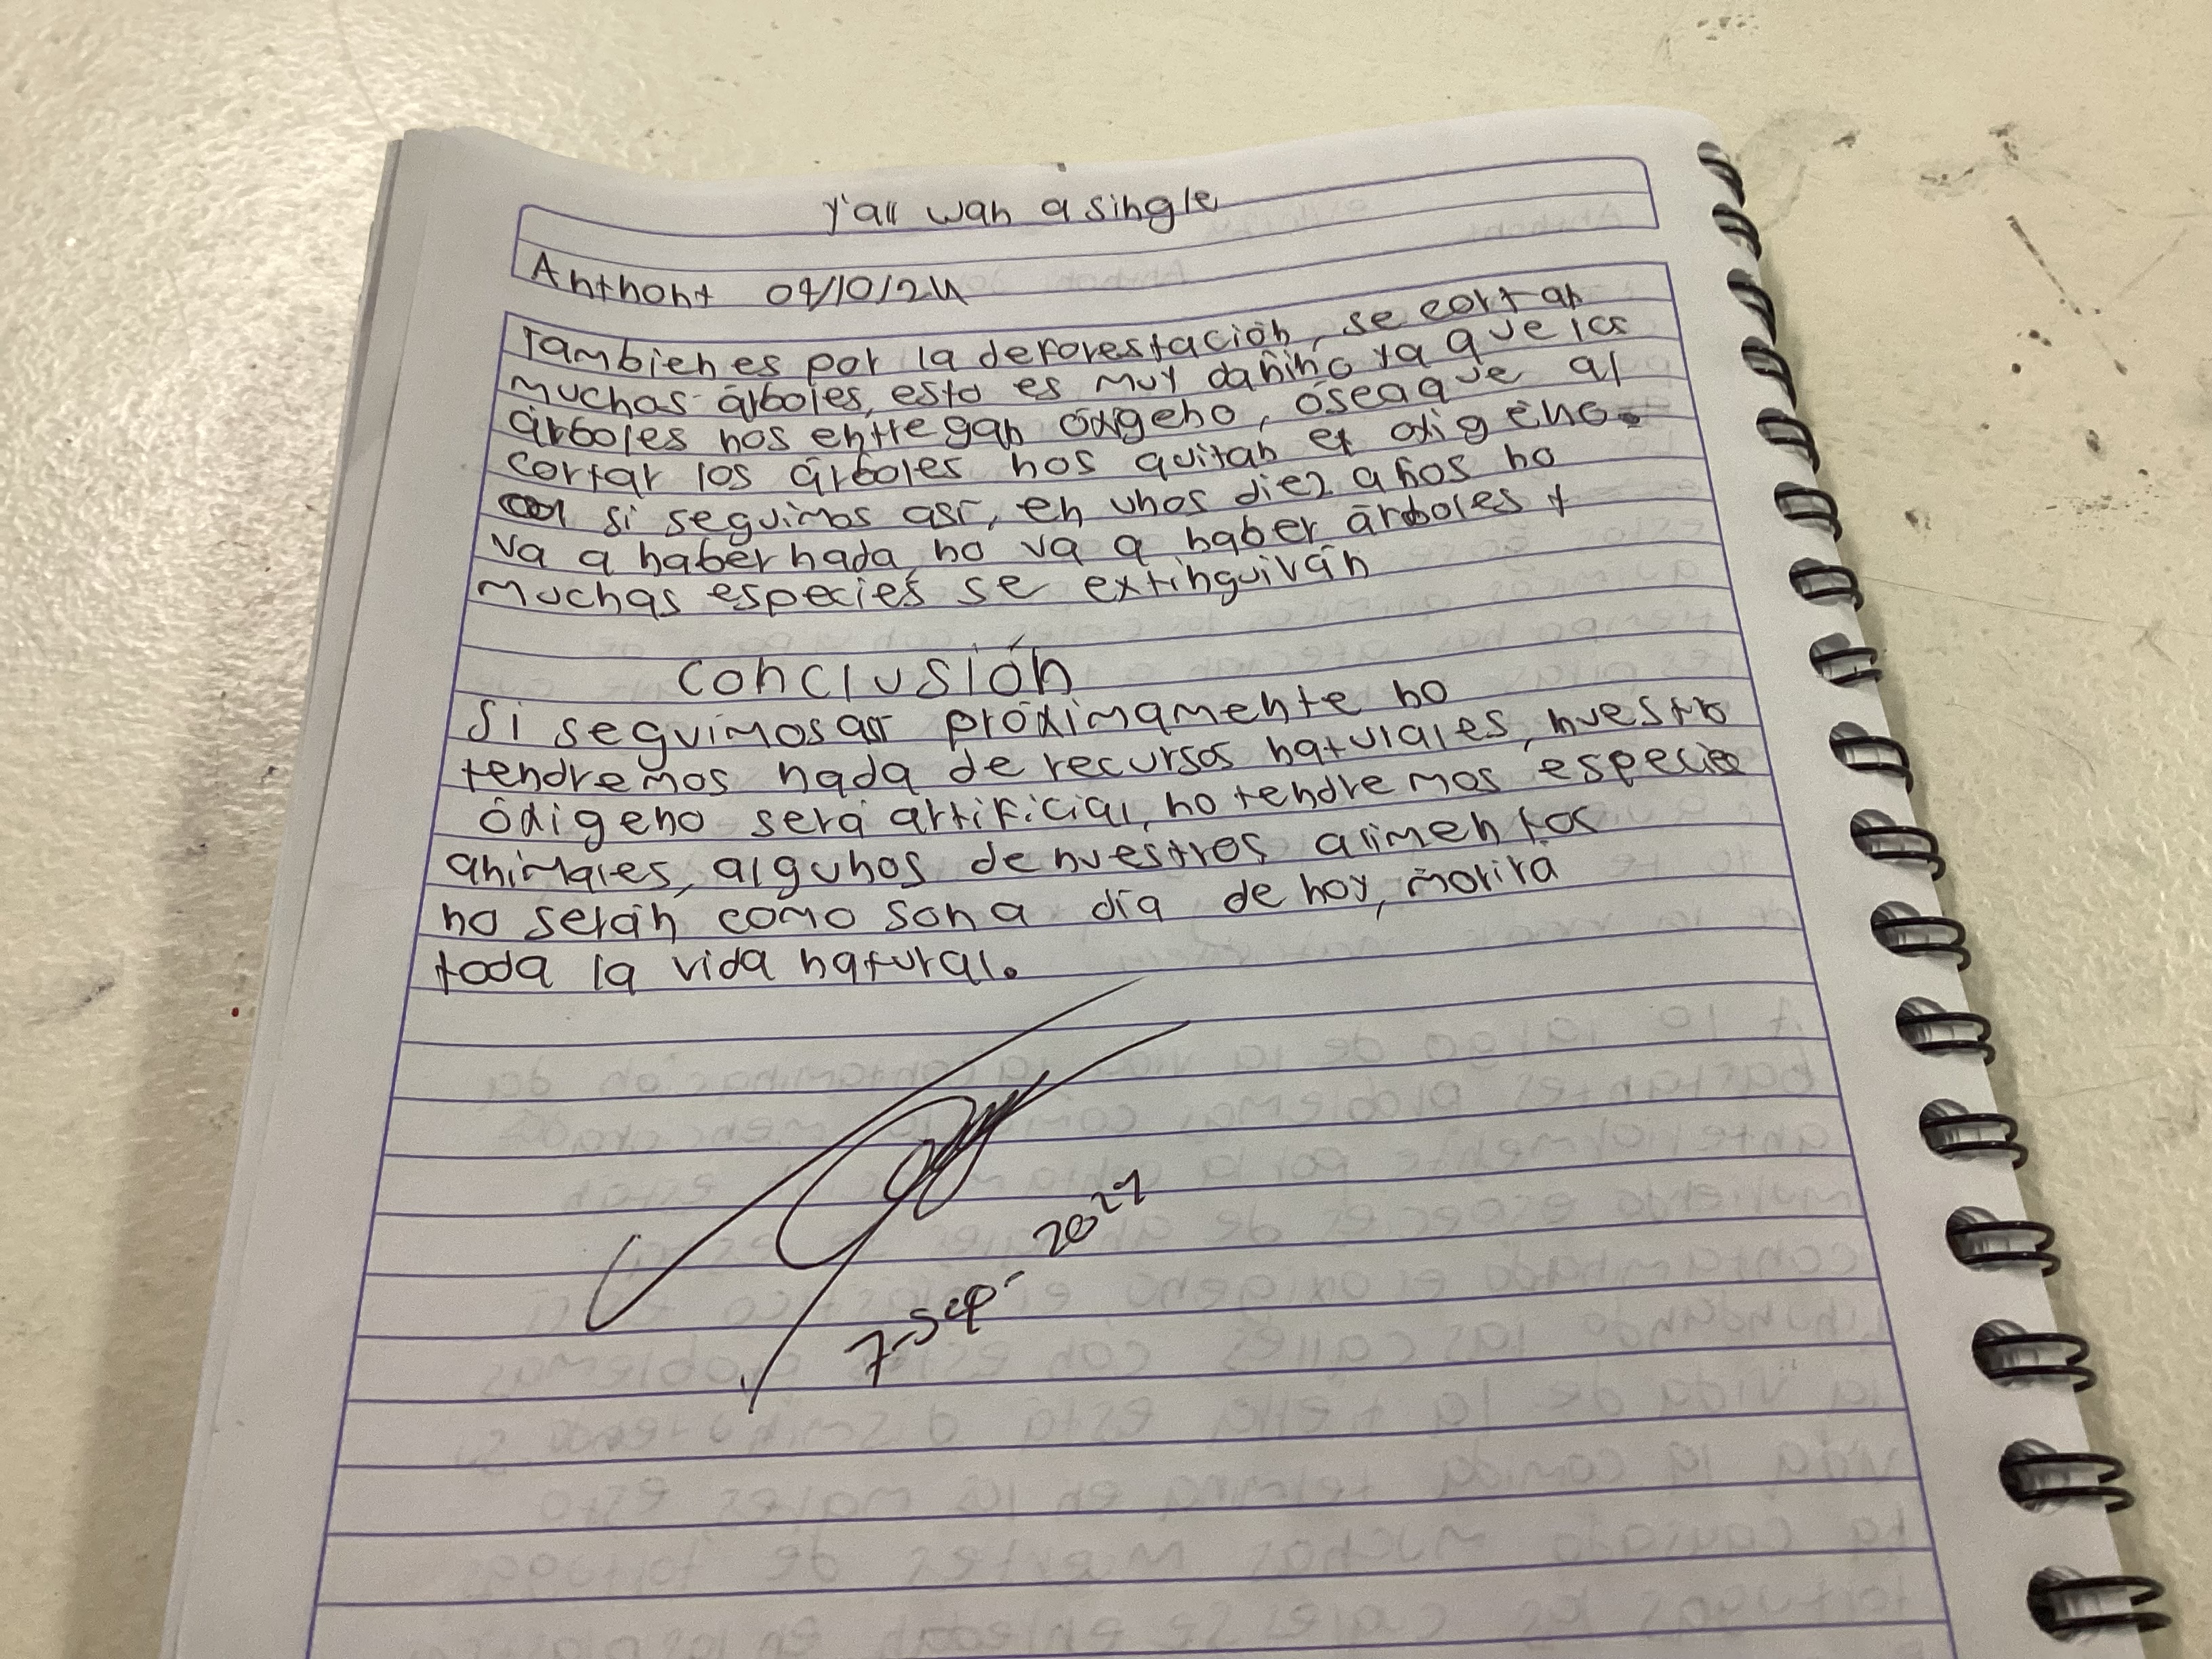 y'all wan a single
Anthony 07/10/24
Tambien es por la deforestación, se cortan
muchos árboles, esto es muy dañino ya que los
árboles nos entregan óxigeno, ósea que al
cortar los árboles nos quitan el oxigeno.
si seguimos así, en unos diez años no
va a haber nada, no va a haber árboles y
muchas especies se extinguirán
Conclusión
Si seguimos así próximamente no
tendremos nada de recursos naturales, nuestro
óxigeno será artificial, no tendremos especie
animales, algunos de nuestros alimentos
no serán como son a día de hoy, morirá
toda la vida natural.
7-Sep-